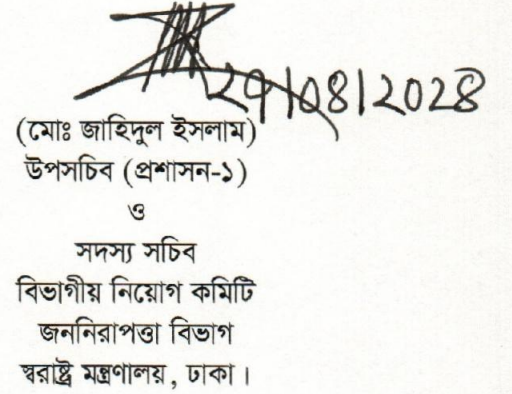 ২৭|০৪|২০২৪
(মোঃ জাহিদুল ইসলাম)
উপসচিব (প্রশাসন-১)
ও
সদস্য সচিব
বিভাগীয় নিয়োগ কমিটি
জননিরাপত্তা বিভাগ
স্বরাষ্ট্র মন্ত্রণালয়, ঢাকা।